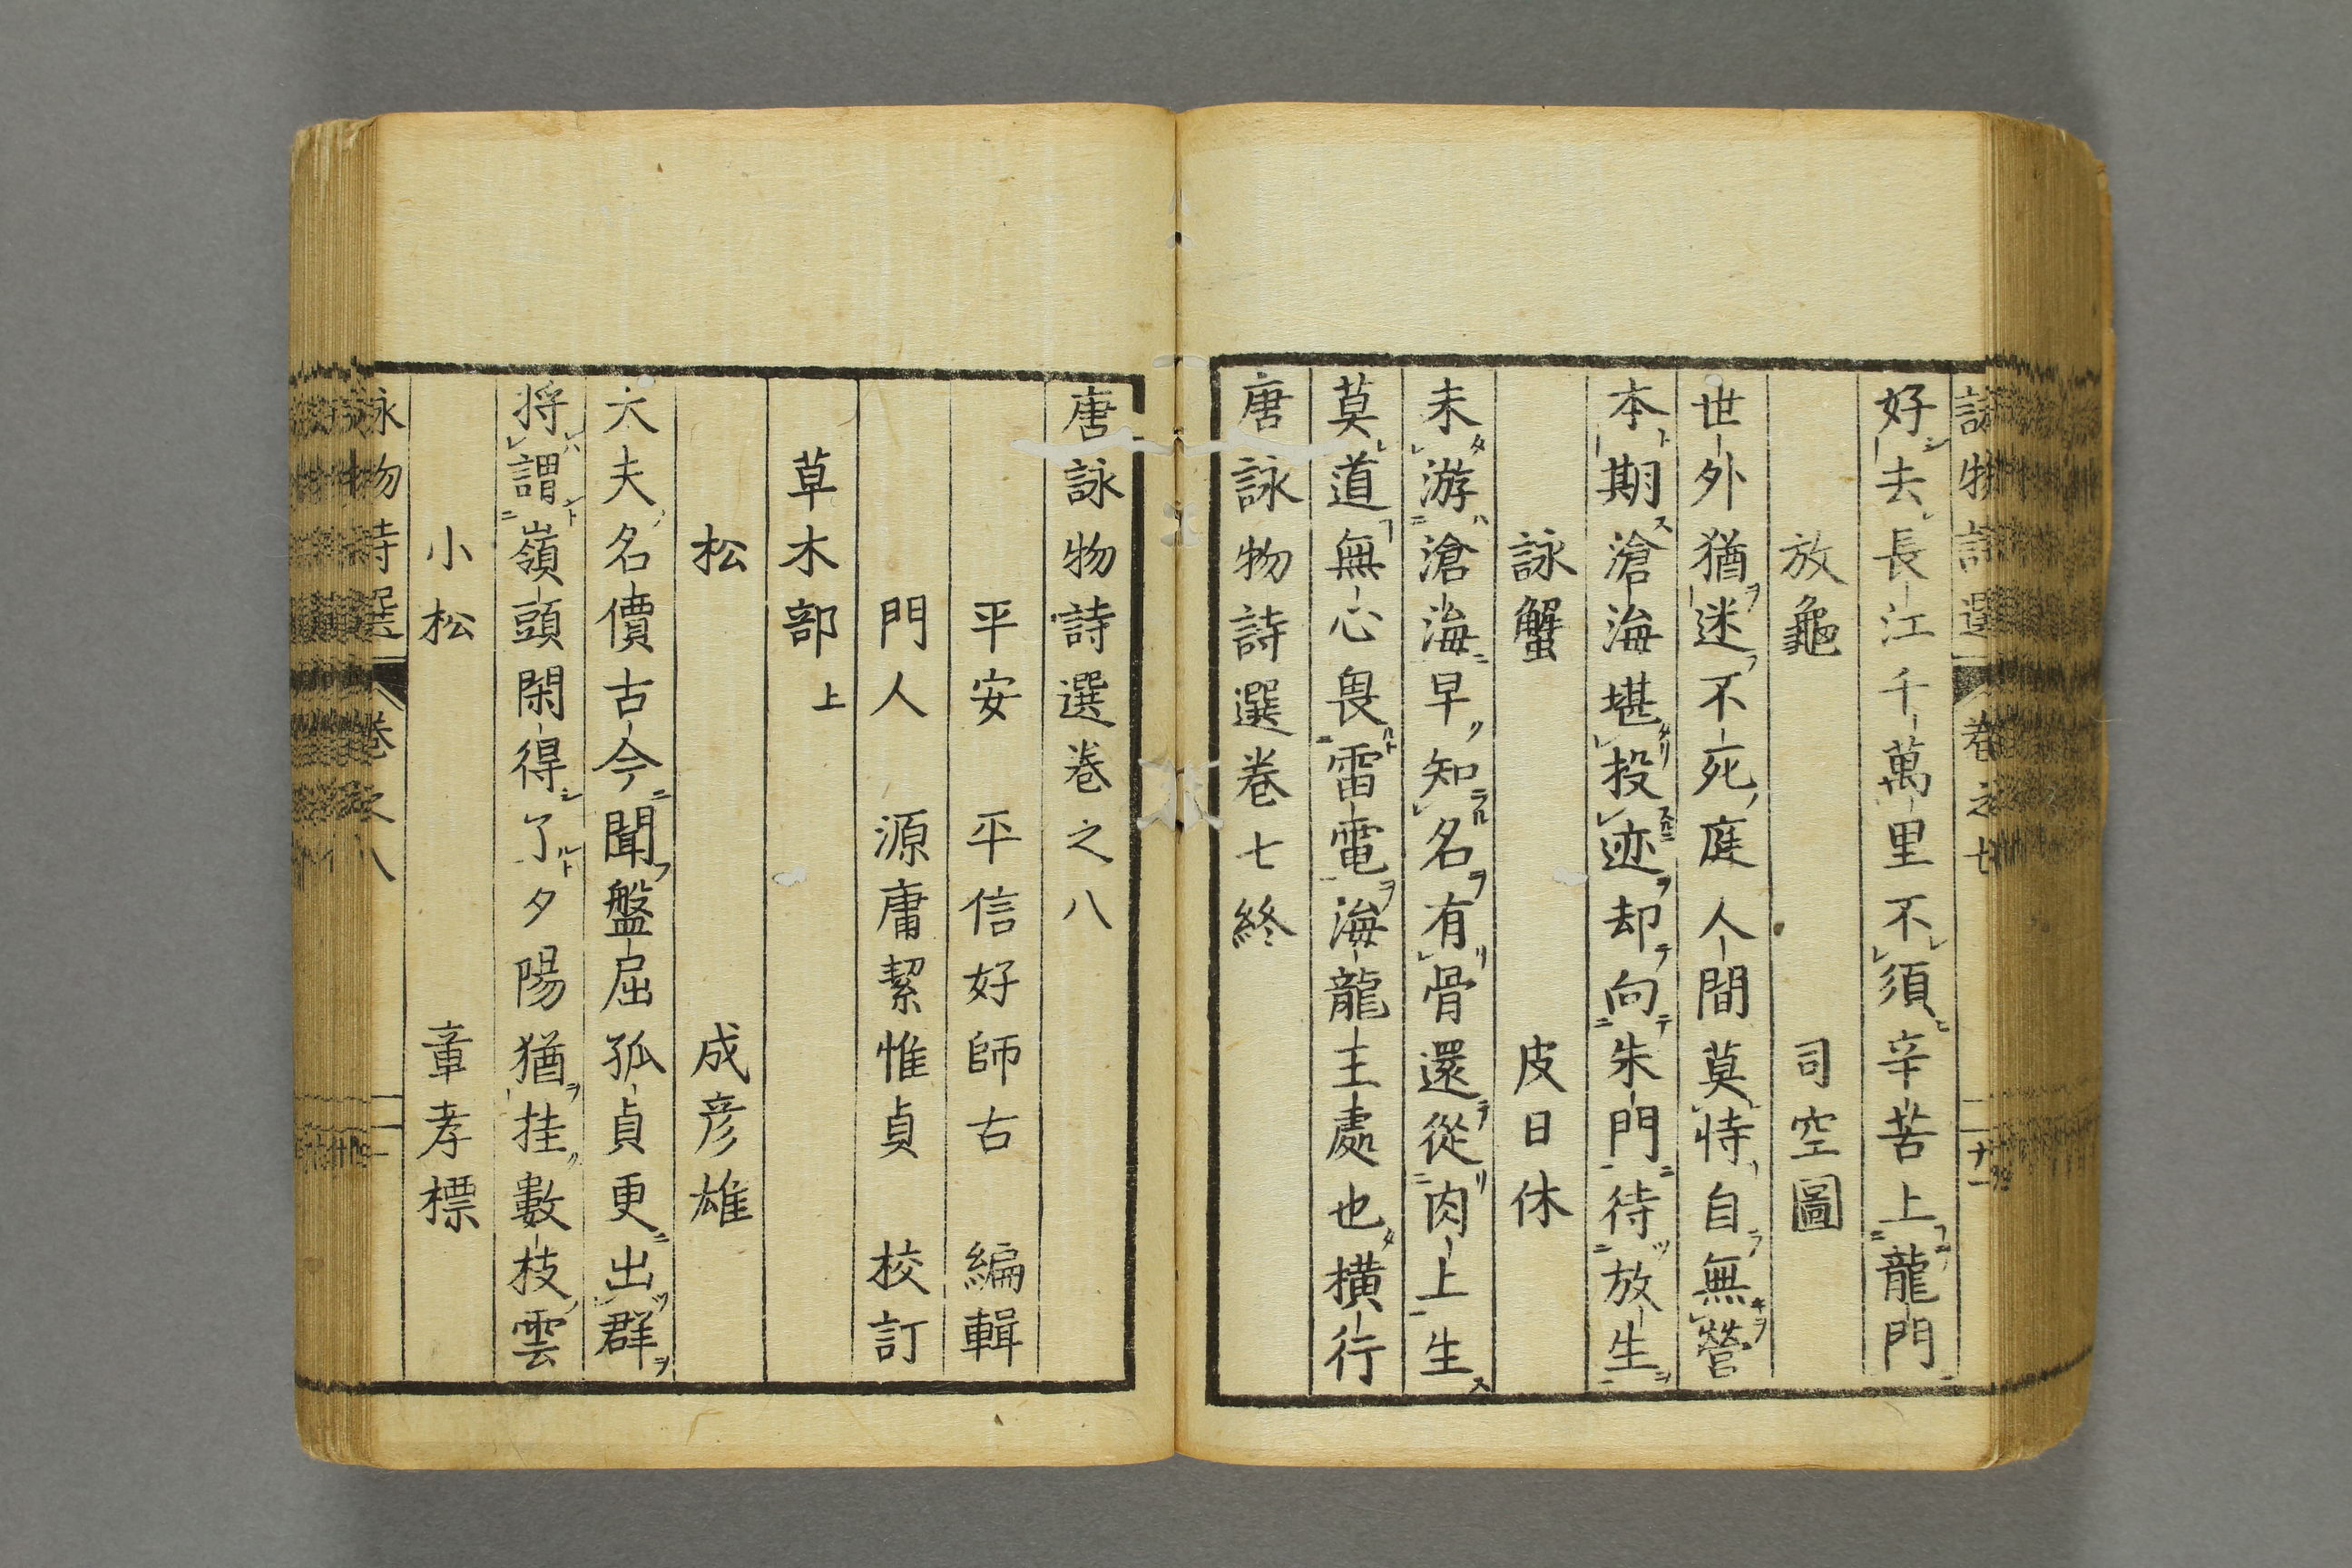 詠物詩選 卷之七
好去長江千萬里不須辛苦上龍門
放龜 司空圖
世外猶迷不死庭人間莫恃自無營
本期滄海堪投迹却向朱門待放生
詠蟹 皮日休
未游滄海早知名有骨還從肉上生
莫道無心畏雷電海龍王處也橫行
唐詠物詩選卷七終
唐詠物詩選卷之八
平安 平信好師古 編輯
門人 源庸絜惟貞 校訂
草木部上
松 成彥雄
大夫名價古今聞盤屈孤貞更出群
將謂嶺頭閑得了夕陽猶挂數枝雲
小松 章孝標
詠物詩選 卷之八